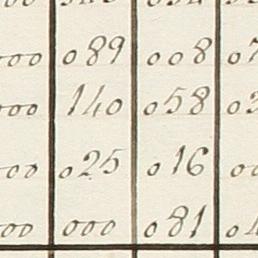 000 089 008
000 140 058
000 025 016
000 000 081